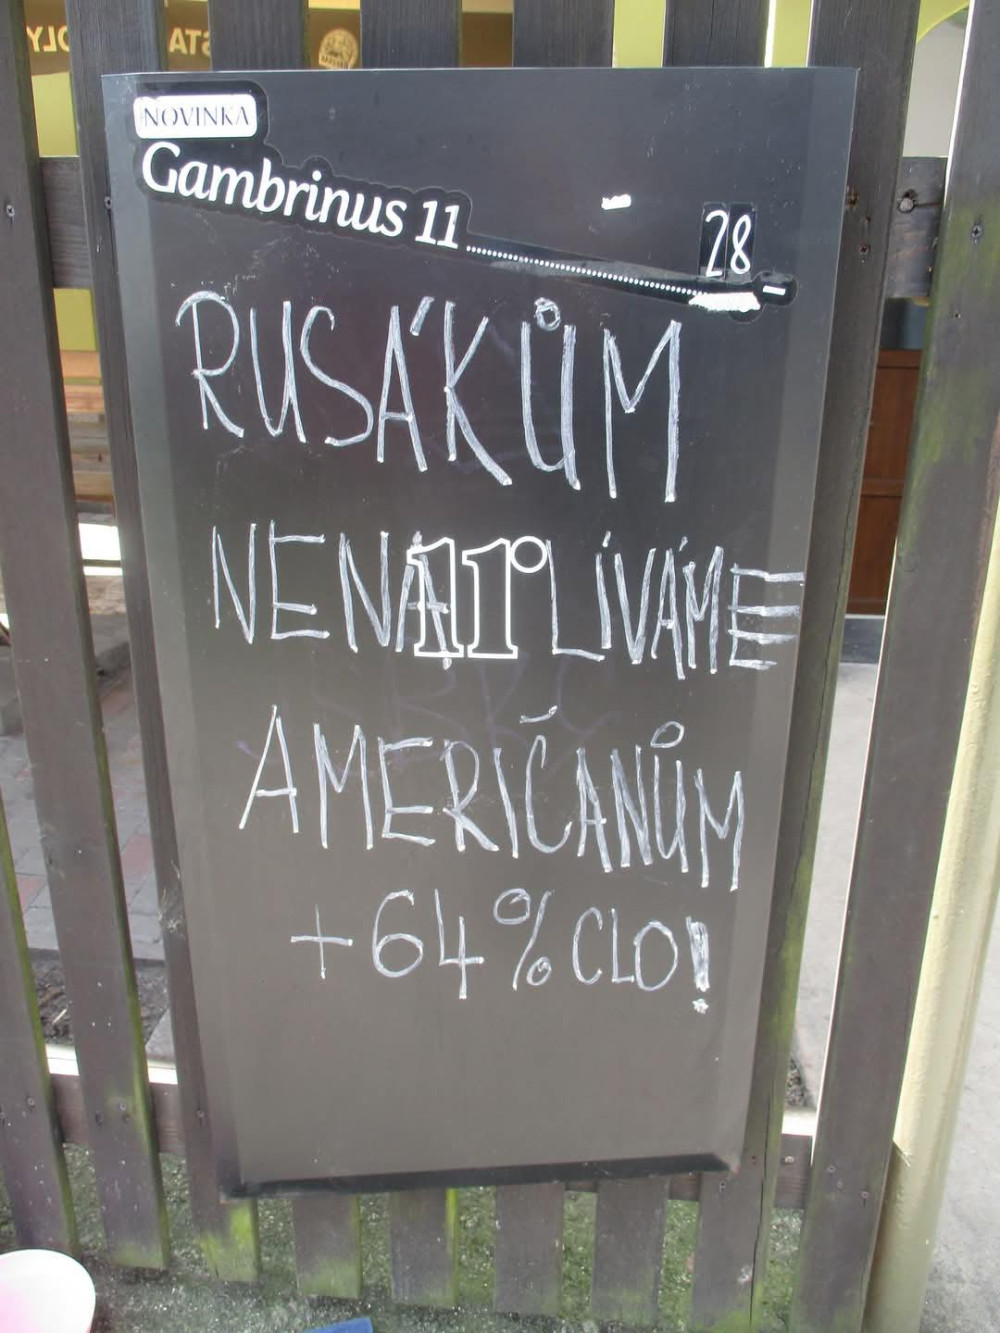 NOVINKA
Gambrinus 11
28
RUSÁKŮM
NENA 11° LÍVÁME
AMERIČANŮM
+64% CLO!